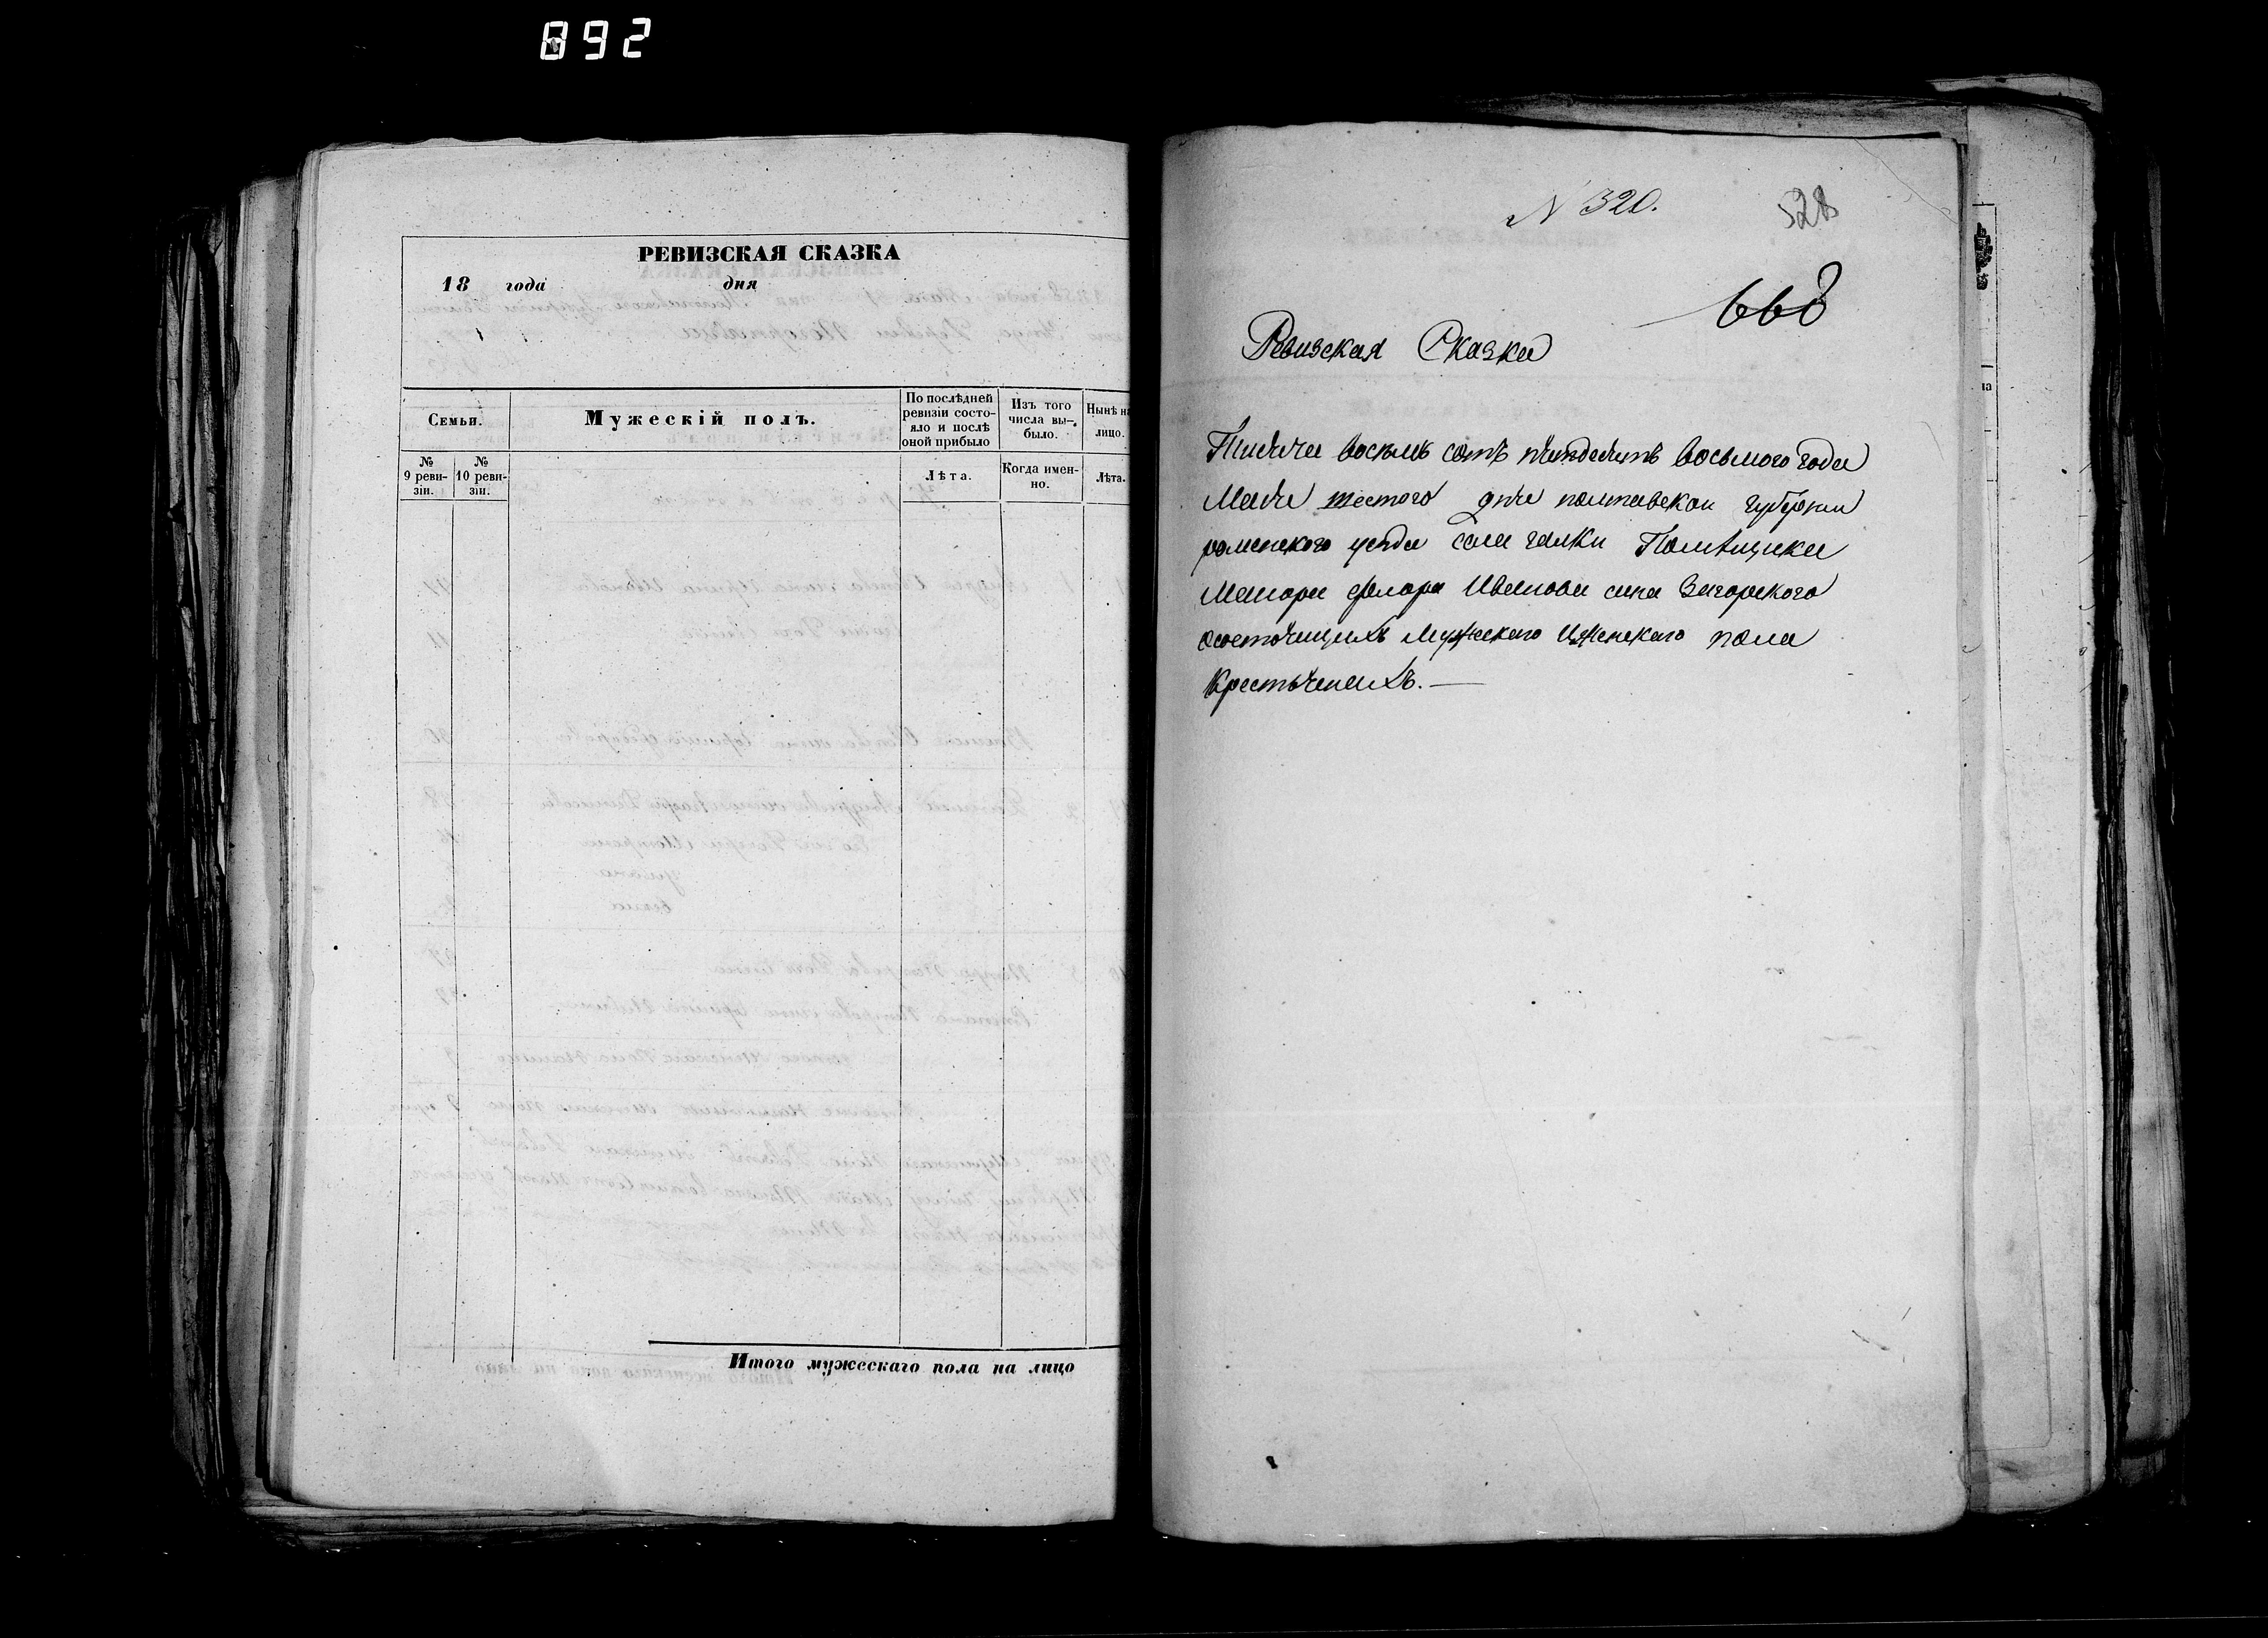 892
РЕВИЗСКАЯ СКАЗКА
18 года дня
Семьи.
Мужескій полъ.
По послѣдней ревизіи состо-
яло и послѣ
оной прибыло
Изъ того
числа вы-
было.
Нынѣ на
лицо.
№
9 реви-
зіи.
№
10 реви-
зіи.
Лѣта.
Когда имен-
но.
Лѣта.
Итого мужескаго пола на лицо
N 320.
528
668
Ревизская Сказка
Тисяча восемь сотъ пятдесятъ восьмого года
Маия шестого дня полтавской губернии
роменского уезда села галки Помѣщика
Маиора флора Иванова сина Загорского
осостоящихъ Мужескаго Иженскаго пола
Крестьянахъ.—